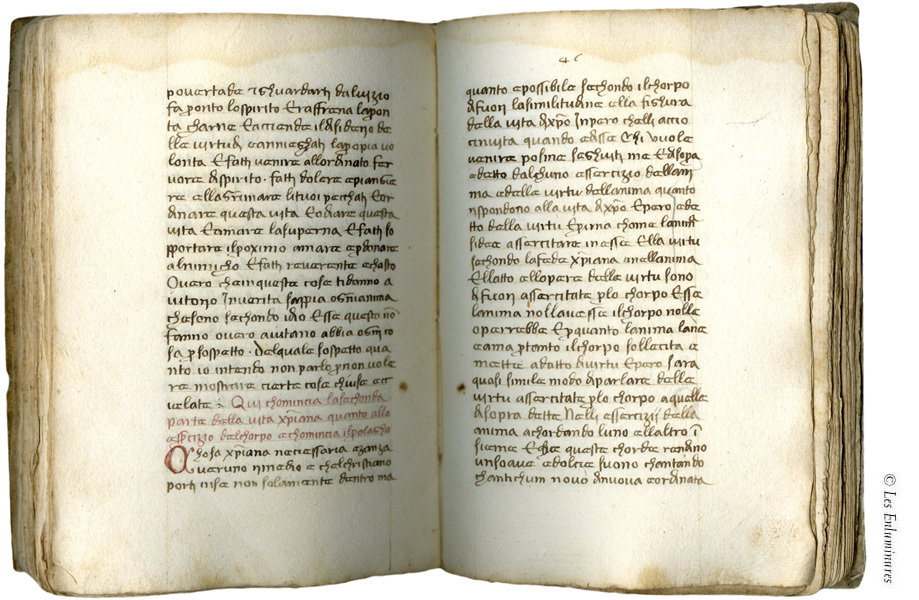 povertade & sghuardarti dal uizio
fa pronto lo spirito E raffrena la pron
ta charne E acciende il disiderio de
lle uirtu E annieghati la propia uo
lonta E fatti uenire allordinato fer
uore di spirito. fatti dolere e piangie
re e llagrimare li tuoi pecchati E or
dinare questa uita E odiare questa
uita E amare la superna E fatti so
pportare il proximo amare e perdonare
al nimicho E fatti reuerente e chasto
Ouero che in queste cose ti danno a
iutorio In uerita sappia ogni anima
che sono sechondo idio E sse questo no
fanno ouero aiutano abbia ogni co
sa per sospetto. Del quale sospetto qua
nto io intendo non parlo per non uole
re mostrare cierte cose chiuse e c
ielate Qui chomincia la sechonda
parte della uita xpiana quanto allo
esercizio del chorpo e chomincia il prolagho
Chosa xpiana neciessaria
e chel christiano
porti in se non solamente dentro ma
46
quanto e possibile sechondo il chorpo
di fuori la similitudine e lla fighura
della uita di xpo Inpero che lli accio
cinuita quando disse Chi uuole
uenire po me seghuiti me E disopra
e detto dalghuno essercizio dellani
ma e delle uirtu dellanima quanto
rispondono alla uita di xpo E pero e de
tto della uirtu E prima chome lanima
si dee assercitare in esse E lla uirtu
sechondo la fede xpiana e nellanima
E llatto e llopere delle uirtu sono
di fuori assercitate per lo chorpo E sse
lanima no llauesse il chorpo nolle
operrebbe E per quanto lanima lane
e ama per tanto il chorpo sollecita e
mette a datto di uirtu E pero sara
quasi simile modo di parlare delle
uirtu assercitate per lo chorpo a quelle
di sopra dette Nelli essercizii della
anima achordando luno ellaltro i
sieme E sse queste chorde rendano
un soaue e dolcie suono chantando
chantichum nouo di nuoua e ordinata
© Les Enluminures